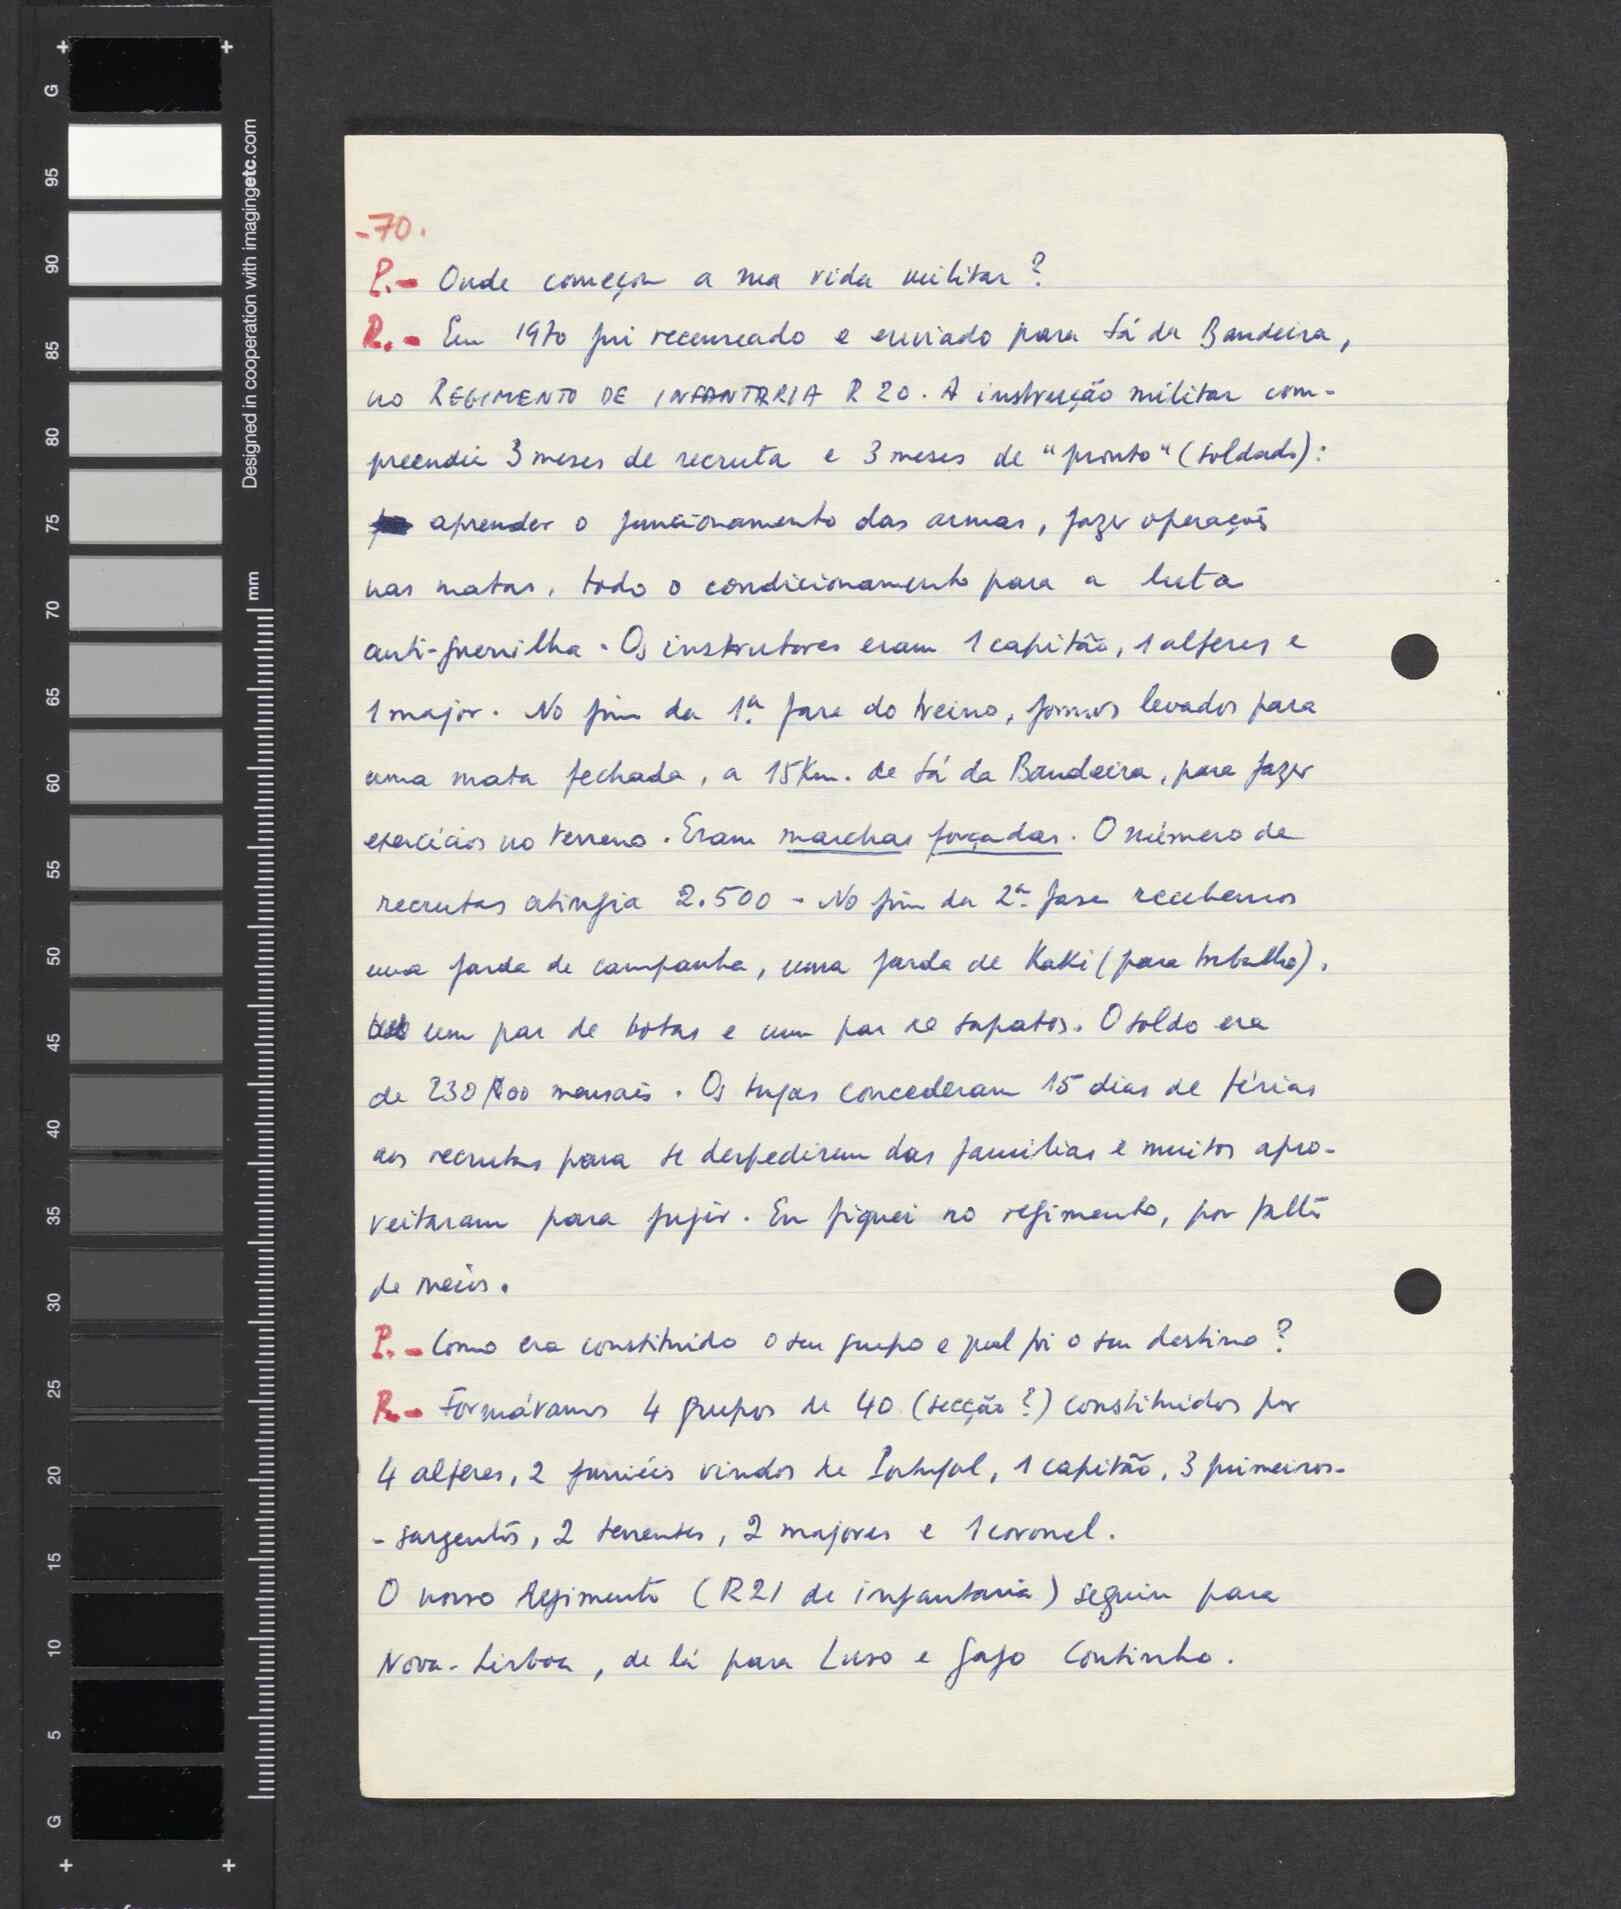 -70.
P.- Onde começou a sua vida militar?
R.- Em 1970 fui recenseado e enviado para Sá da Bandeira,
no REGIMENTO DE INFANTARIA R 20. A instrução militar com-
preendia 3 meses de recruta e 3 meses de "pronto" (soldado):
aprender o funcionamento das armas, fazer operações
nas matas, todo o condicionamento para a luta
anti-guerrilha. Os instrutores eram 1 capitão, 1 alferes e
1 major. No fim da 1ª fase do treino, fomos levados para
uma mata fechada, a 15 Km. de Sá da Bandeira, para fazer
exercícios no terreno. Eram marchas forçadas. O número de
recrutas atingia 2.500 - No fim da 2ª fase recebemos
uma farda de campanha, uma farda de Kaki (para trabalho),
um par de botas e um par de sapatos. O soldo era
de 230$00 mensais. Os tugas concederam 15 dias de férias
aos recrutas para se despedirem das famílias e muitos apro-
veitaram para fugir. Eu fiquei no regimento, por falta
de meios.
P.- Como era constituido o seu grupo e qual foi o seu destino?
R.- Formávamos 4 grupos de 40 (secção?) constituidos por
4 alferes, 2 furriéis vindos de Portugal, 1 capitão, 3 primeiros-
-sargentos, 2 tenentes, 2 majores e 1 coronel.
O nosso Regimento (R21 de infantaria) seguiu para
Nova-Lisboa, de lá para Luso e Gago Coutinho.
G
95
90
85
80
75
70
65
60
55
50
45
40
35
30
25
20
15
10
5
G
Designed in cooperation with imagingetc.com
mm